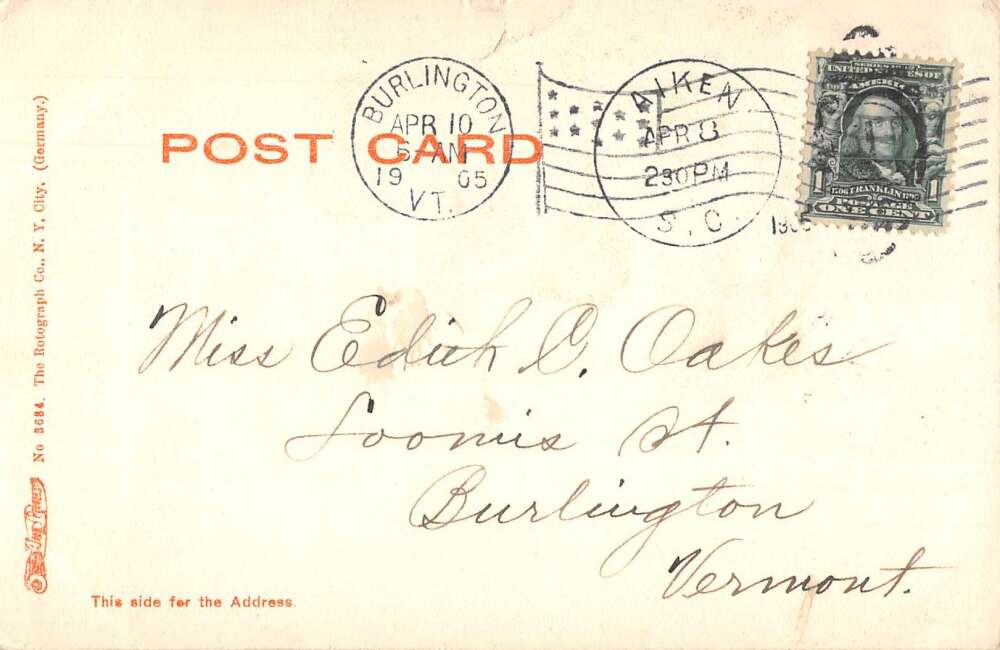 BURLINGTON
APR 10
5 AM
19 05
VT.
AIKEN
APR 8
230 PM
S. C.
UNITED STATES OF
AMERICA
1 1706 FRANKLIN 1790 1
POSTAGE
ONE CENT
POST CARD
Miss Edith C. Oakes
Loomis St.
Burlington
Vermont.
This side for the Address.
No 3684. The Rotograph Co., N. Y. City. (Germany.)